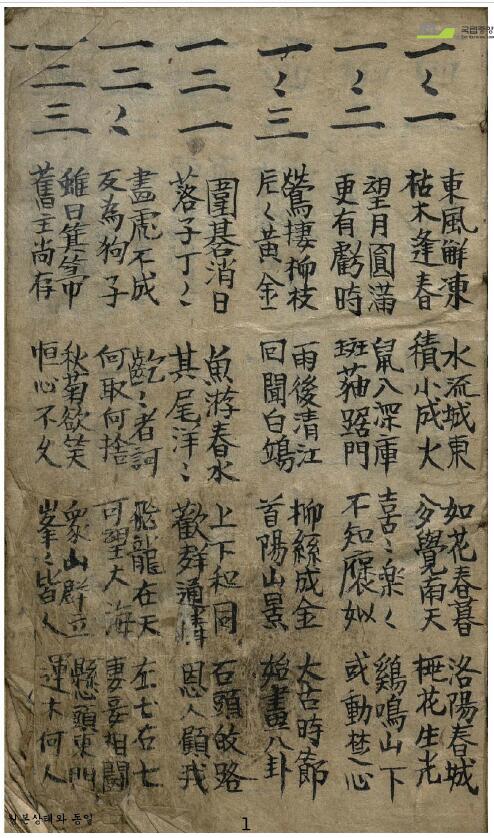 一〻一
東風解凍 水流城東 如花春暮 洛陽春城
枯木逢春 積小成大 覺南天 花生光
一〻二
望月圓滿 鼠入深庫 喜〻樂〻 鷄鳴山下
更有虧時 斑猫踞門 不知褒姒 或動楚心
一〻三
鶯捿柳枝 雨後清江 柳絲成金 太古時節
片〻黃金 回聞白鴻 首陽山景 始畫八卦
一二一
圍碁消日 魚游春水 上下和同 石頭的路
落子丁〻 其尾洋〻 歡群通情 恩人顧我
一二〻
畵虎不成 〻者訶 飛龍在天 左七右七
反為狗子 何取何捨 可望大海 妻妾相鬪
一二三
雖曰箕箒 秋菊欲笑 衆山群立 懸頭東門
舊主尚存 恒心不久 峯〻皆人 運木何人
국립중앙
원본상태와 동일
1